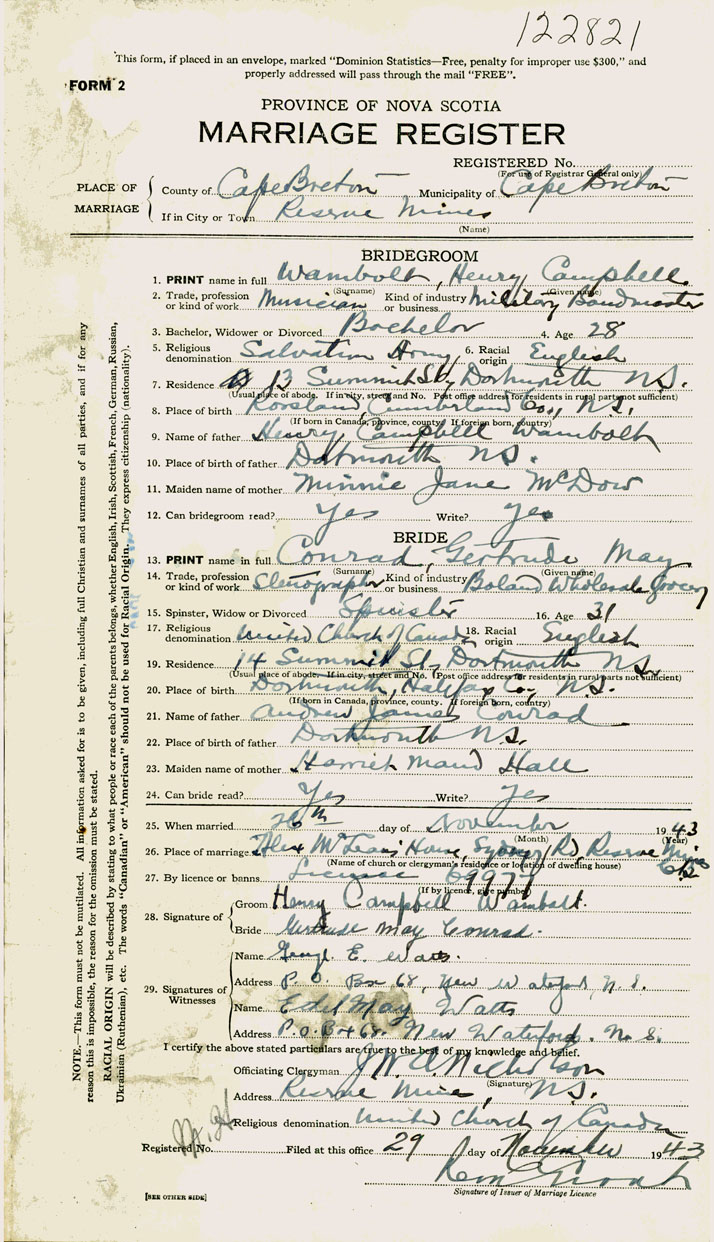 122821
This form, if placed in an envelope, marked "Dominion Statistics—Free, penalty for improper use $300," and
properly addressed will pass through the mail "FREE".
FORM 2
PROVINCE OF NOVA SCOTIA
MARRIAGE REGISTER
REGISTERED No.
(For use of Registrar General only)
PLACE OF MARRIAGE
County of Cape Breton Municipality of Cape Breton
If in City or Town Reserve Mines
(Name)
BRIDEGROOM
1. PRINT name in full Wambolt, Henry Campbell
(Surname) (Given name)
2. Trade, profession or kind of work Musician Kind of industry or business Military Bandmaster
3. Bachelor, Widower or Divorced Bachelor 4. Age 28
5. Religious denomination Salvation Army 6. Racial origin English
7. Residence 13 Summit St, Dartmouth N.S.
(Usual place of abode. If in city, street and No. Post office address for residents in rural parts not sufficient)
8. Place of birth Cumberland Co., N.S.
(If born in Canada, province, county. If foreign born, country)
9. Name of father Henry Campbell Wambolt
10. Place of birth of father Dartmouth N.S.
11. Maiden name of mother Minnie Jane McDow
12. Can bridegroom read? Yes Write? Yes
BRIDE
13. PRINT name in full Conrad, Gertrude May
(Surname) (Given name)
14. Trade, profession or kind of work Stenographer Kind of industry or business Wholesale Grocery
15. Spinster, Widow or Divorced Spinster 16. Age 31
17. Religious denomination United Church of Canada 18. Racial origin English
19. Residence 14 Summit St, Dartmouth N.S.
(Usual place of abode. If in city, street and No. Post office address for residents in rural parts not sufficient)
20. Place of birth Dartmouth, Halifax Co., N.S.
(If born in Canada, province, county. If foreign born, country)
21. Name of father Andrew James Conrad
22. Place of birth of father Dartmouth N.S.
23. Maiden name of mother Harriet Maud Hall
24. Can bride read? Yes Write? Yes
25. When married 26th day of November 1943
(Month) (Year)
26. Place of marriage Alex McLean's House, Sydney (R), Reserve Mines
(Name of church or clergyman's residence or location of dwelling house)
27. By licence or banns License 69977
(If by licence, give number)
28. Signature of
Groom Henry Campbell Wambolt.
Bride Gertrude May Conrad.
29. Signatures of Witnesses
Name George E. Watts.
Address P.O. Box 68, New Waterford, N.S.
Name Ethel May Watts
Address P.O. Box 68. New Waterford. N.S.
I certify the above stated particulars are true to the best of my knowledge and belief.
Officiating Clergyman J.W.A. Nicholson
(Signature)
Address Reserve Mines, N.S.
Religious denomination United Church of Canada
Registered No. Filed at this office 29 day of November 1943
Signature of Issuer of Marriage Licence
[SEE OTHER SIDE]
NOTE.—This form must not be mutilated. All information asked for is to be given, including full Christian and surnames of all parties, and if for any
reason this is impossible, the reason for the omission must be stated.
RACIAL ORIGIN will be described by stating to what people or race each of the parents belongs, whether English, Irish, Scottish, French, German, Russian,
Ukrainian (Ruthenian), etc. The words "Canadian" or "American" should not be used for Racial Origin. They express citizenship (nationality).